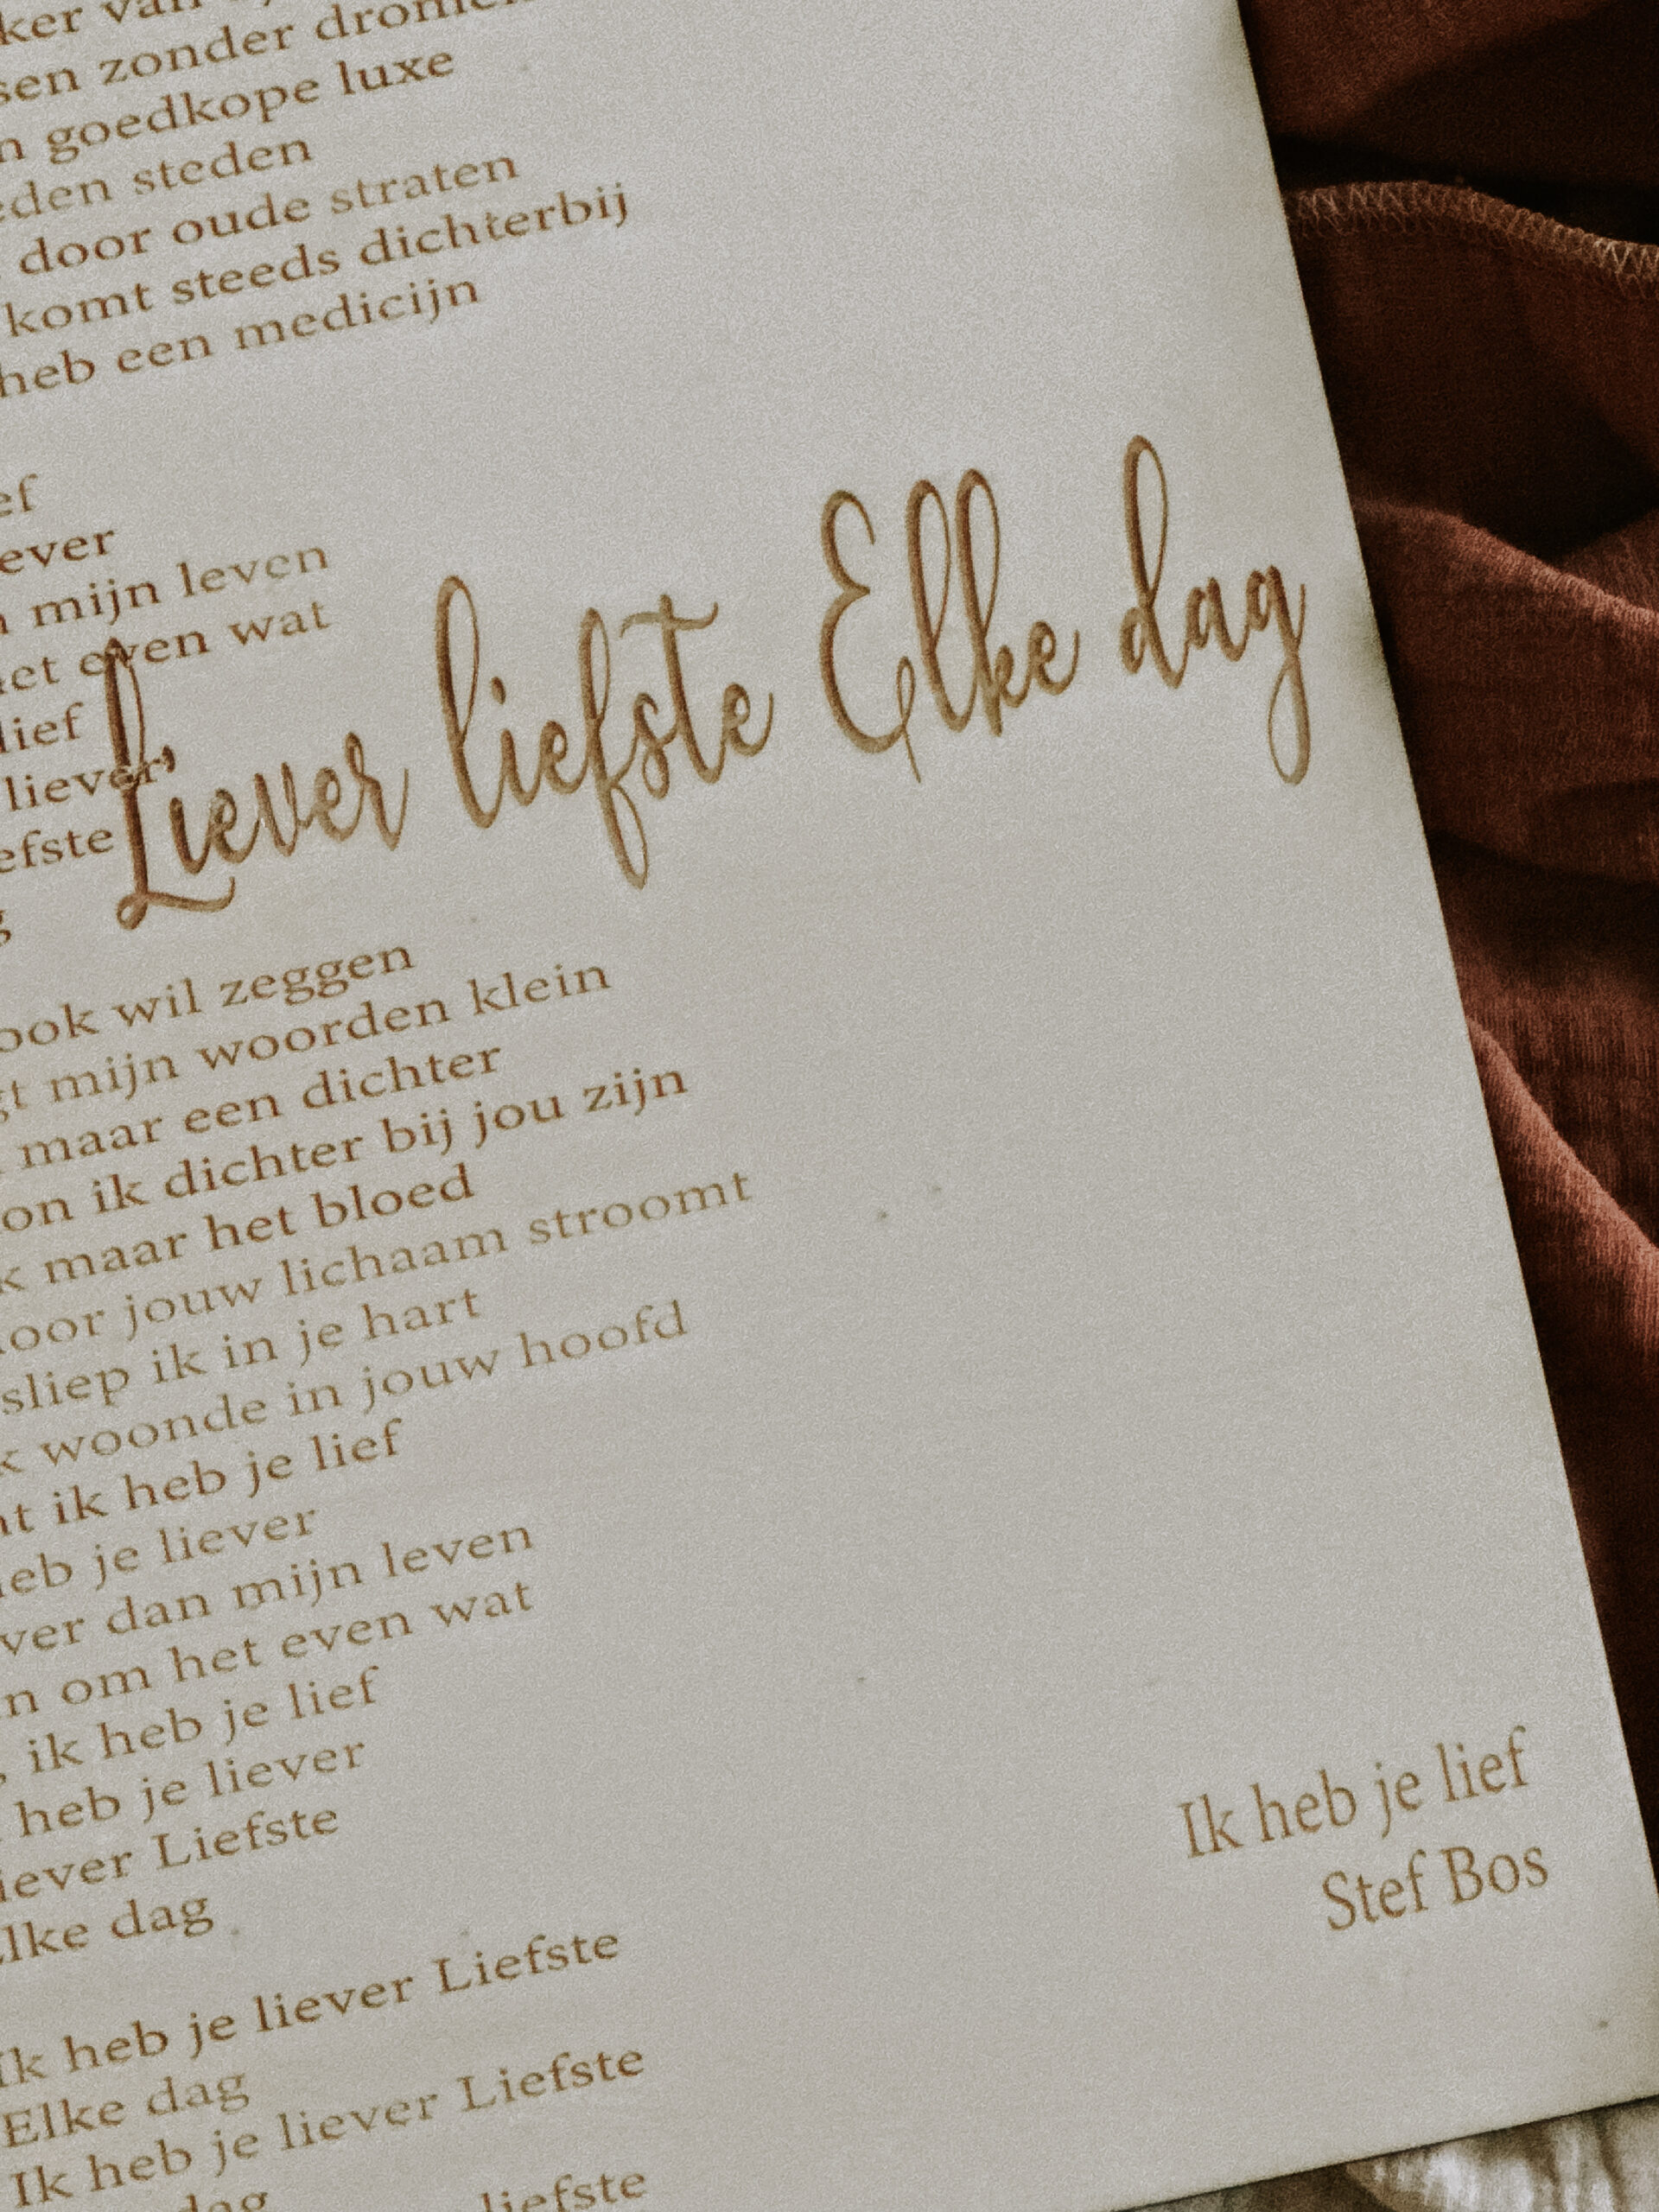 ker van
sen zonder
n goedkope luxe
eden steden
door oude straten
komt steeds dichterbij
heb een medicijn
ef
ever
mijn leven
et even wat
lief
liever,
efste
g
Liever liefste Elke dag
ook wil zeggen
gt mijn woorden klein
maar een dichter
on ik dichter bij jou zijn
k maar het bloed
oor jouw lichaam stroomt
sliep ik in je hart
k woonde in jouw hoofd
nt ik heb je lief
eb je liever
ver dan mijn leven
n om het even wat
, ik heb je lief
heb je liever
iever Liefste
lke dag
Ik heb je liever Liefste
Elke dag
Ik heb je liever Liefste
dag liefste
Ik heb je lief
Stef Bos